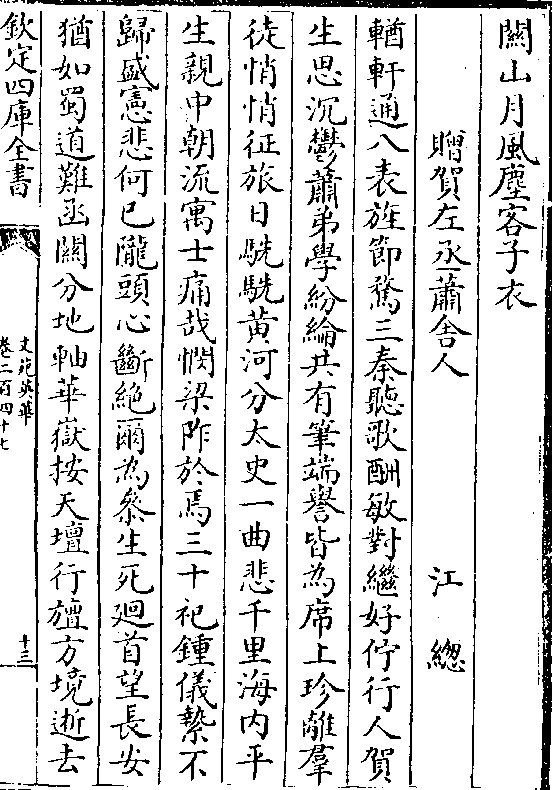 關山月風塵客子衣
贈賀左丞蕭舍人　江緫
輶軒通八表旌節騖三秦聽歌酬敏對繼好佇行人賀
生思沉鬱蕭弟學紛綸共有筆端譽皆為席上珍離羣
徒悄悄征旅日駪駪黄河分太史一曲悲千里海内平
生親中朝流寓士痛哉憫梁祚於焉三十祀鍾儀縶不
歸盛憲悲何已隴頭心斷絶爾為叅生死廻首望長安
猶如蜀道難函關分地軸華嶽按天壇行旜方境逝去
欽定四庫全書
文苑英華
卷二百四十七
十三